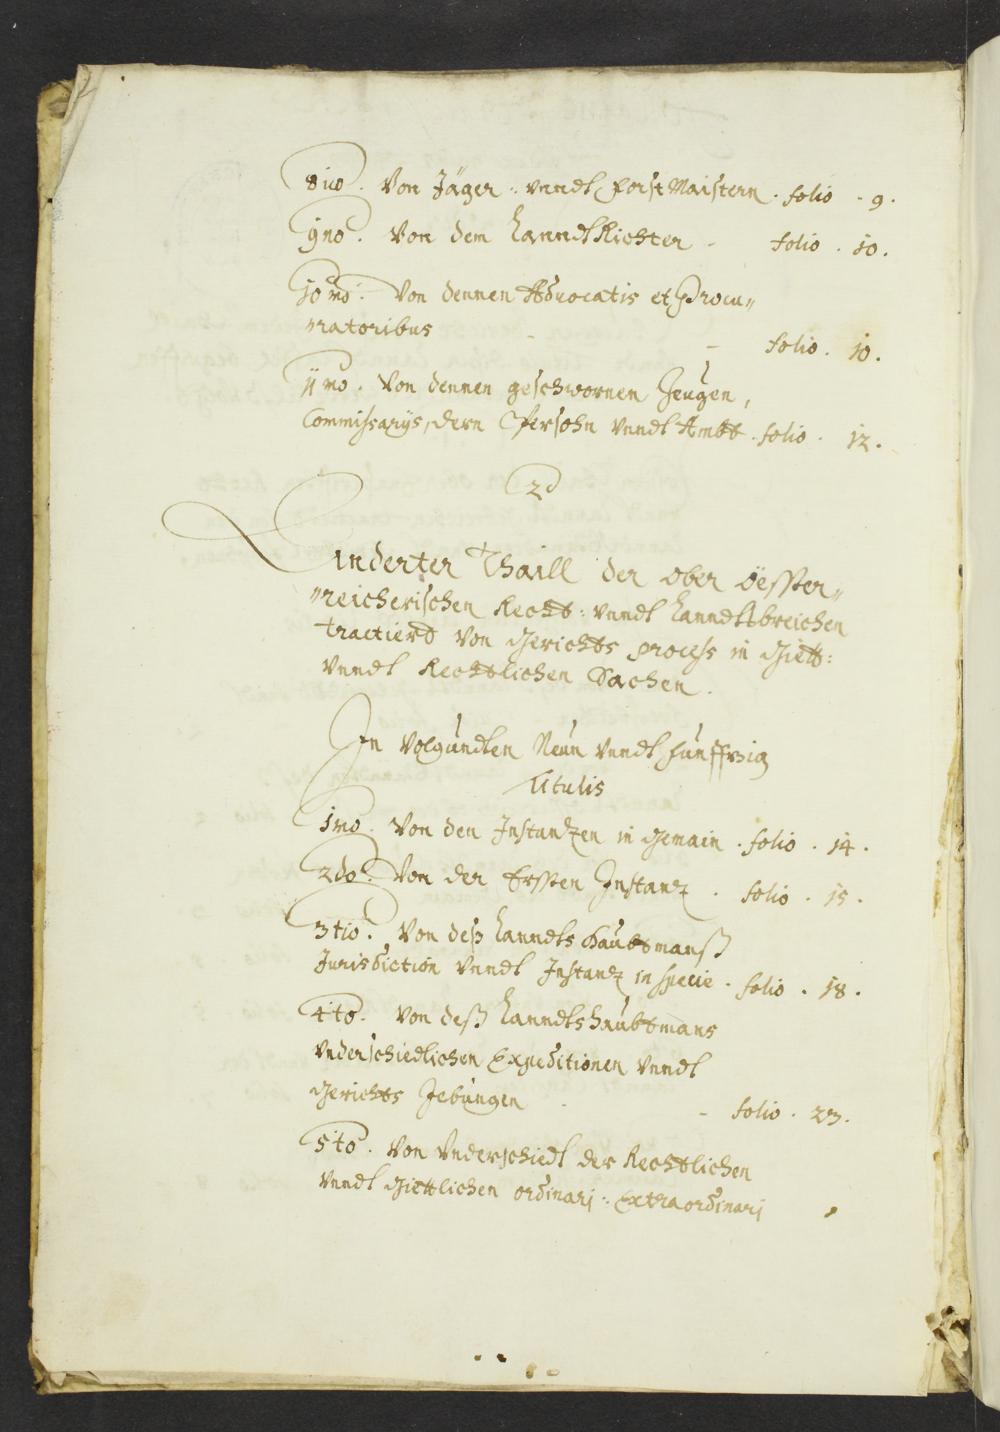 8uo. Von Jäger: vnndt Forst Maistern. folio. 9.
9no. Von dem LanndtRichter - folio. 10.
10mo. Von dennen Aduocatis et Procu„
„ratoribus - - folio. 10.
11mo. Von dennen geschwornen Zeugen,
Commissarijs, dern Persohn vnndt Ambt. folio. 12.
2d
Anderter Thaill der ober össter„
„reicherischen Recht: vnndt Lanndtsbreichen
tractierd von Gerichts process in Giett:
vnndt Rechtlichen Sachen.
In Volgundten Neun vnndt funffzig
titulis
1mo. Von den Instantzen in gemain. folio. 14.
2do. Von der Ersten Instantz. folio. 15.
3tio. Von deß Lanndts Haubtmanß
Jurisdiction vnndt Instantz in specie. folio. 18.
4to. Von deß Lanndtshaubtmans
vnderschiedlichen Expeditionen vnndt
Gerichts Iebungen - - folio. 23.
5to. Von Vnderschiedt der Rechtlichen
vnndt giettlichen ordinarj: Extraordinarj